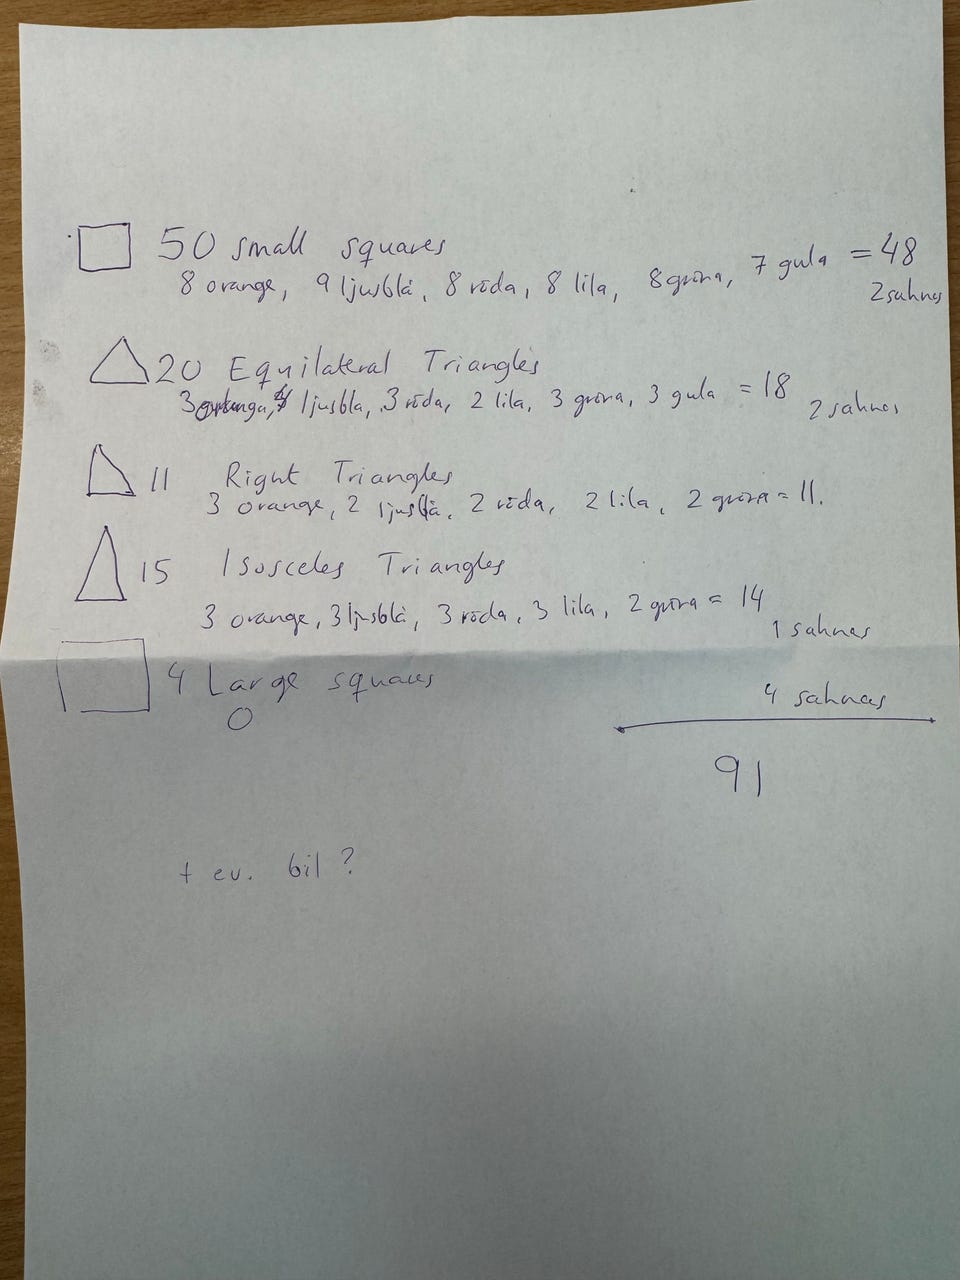 50 small squares
8 orange, 9 ljusblå, 8 röda, 8 lila, 8 gröna, 7 gula = 48
2 saknas
20 Equilateral Triangles
3 ljusbla, 3 röda, 2 lila, 3 gröna, 3 gula = 18
2 saknas
11 Right Triangles
3 orange, 2 ljusblå, 2 röda, 2 lila, 2 gröna = 11.
15 Isosceles Triangles
3 orange, 3 ljusblå, 3 röda, 3 lila, 2 gröna = 14
1 saknas
4 Large squares
0
4 saknas
91
+ ev. bil ?